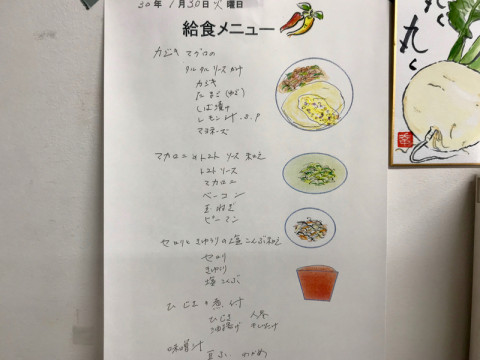 30年 1月30日火曜日
給食メニュー
カジキマグロの
タルタルソースかけ
カジキ
たまご(ゆで)
しば漬け
レモン汁.S.P
マヨネーズ
マカロニのトマトソース和え
トマトソース
マカロニ
ベーコン
玉ねぎ
ピーマン
セロリときゅうりの塩こんぶ和え
セロリ
きゅうり
塩こんぶ
ひじきの煮付
ひじき 人参
油揚げ
味噌汁
豆ふ わかめ
丸く
幸